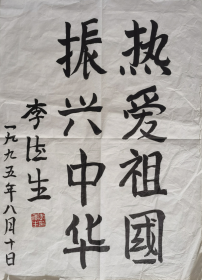 热爱祖國
振兴中华
李德生
一九九五年八月十日